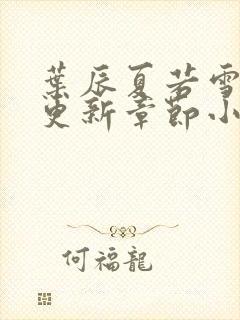 葉辰夏若雪
更新章節小
何福龍